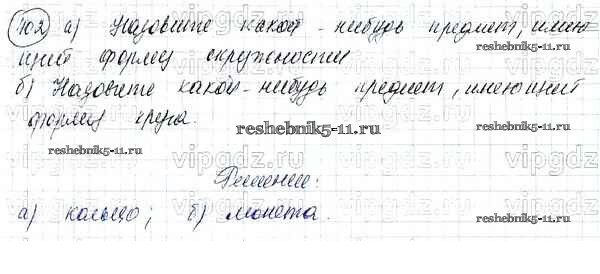 102 а) Назовите какой-нибудь предмет, имею
щий форму окружности
б) Назовите какой-нибудь предмет, имеющий
форму круга.
Решение:
а) кольцо; б) монета.
reshebnik5-11.ru
reshebnik5-11.ru
reshebnik5-11.ru
reshebnik5-11.ru
vipgdz.ru
vipgdz.ru
vipgdz.ru
vipgdz.ru